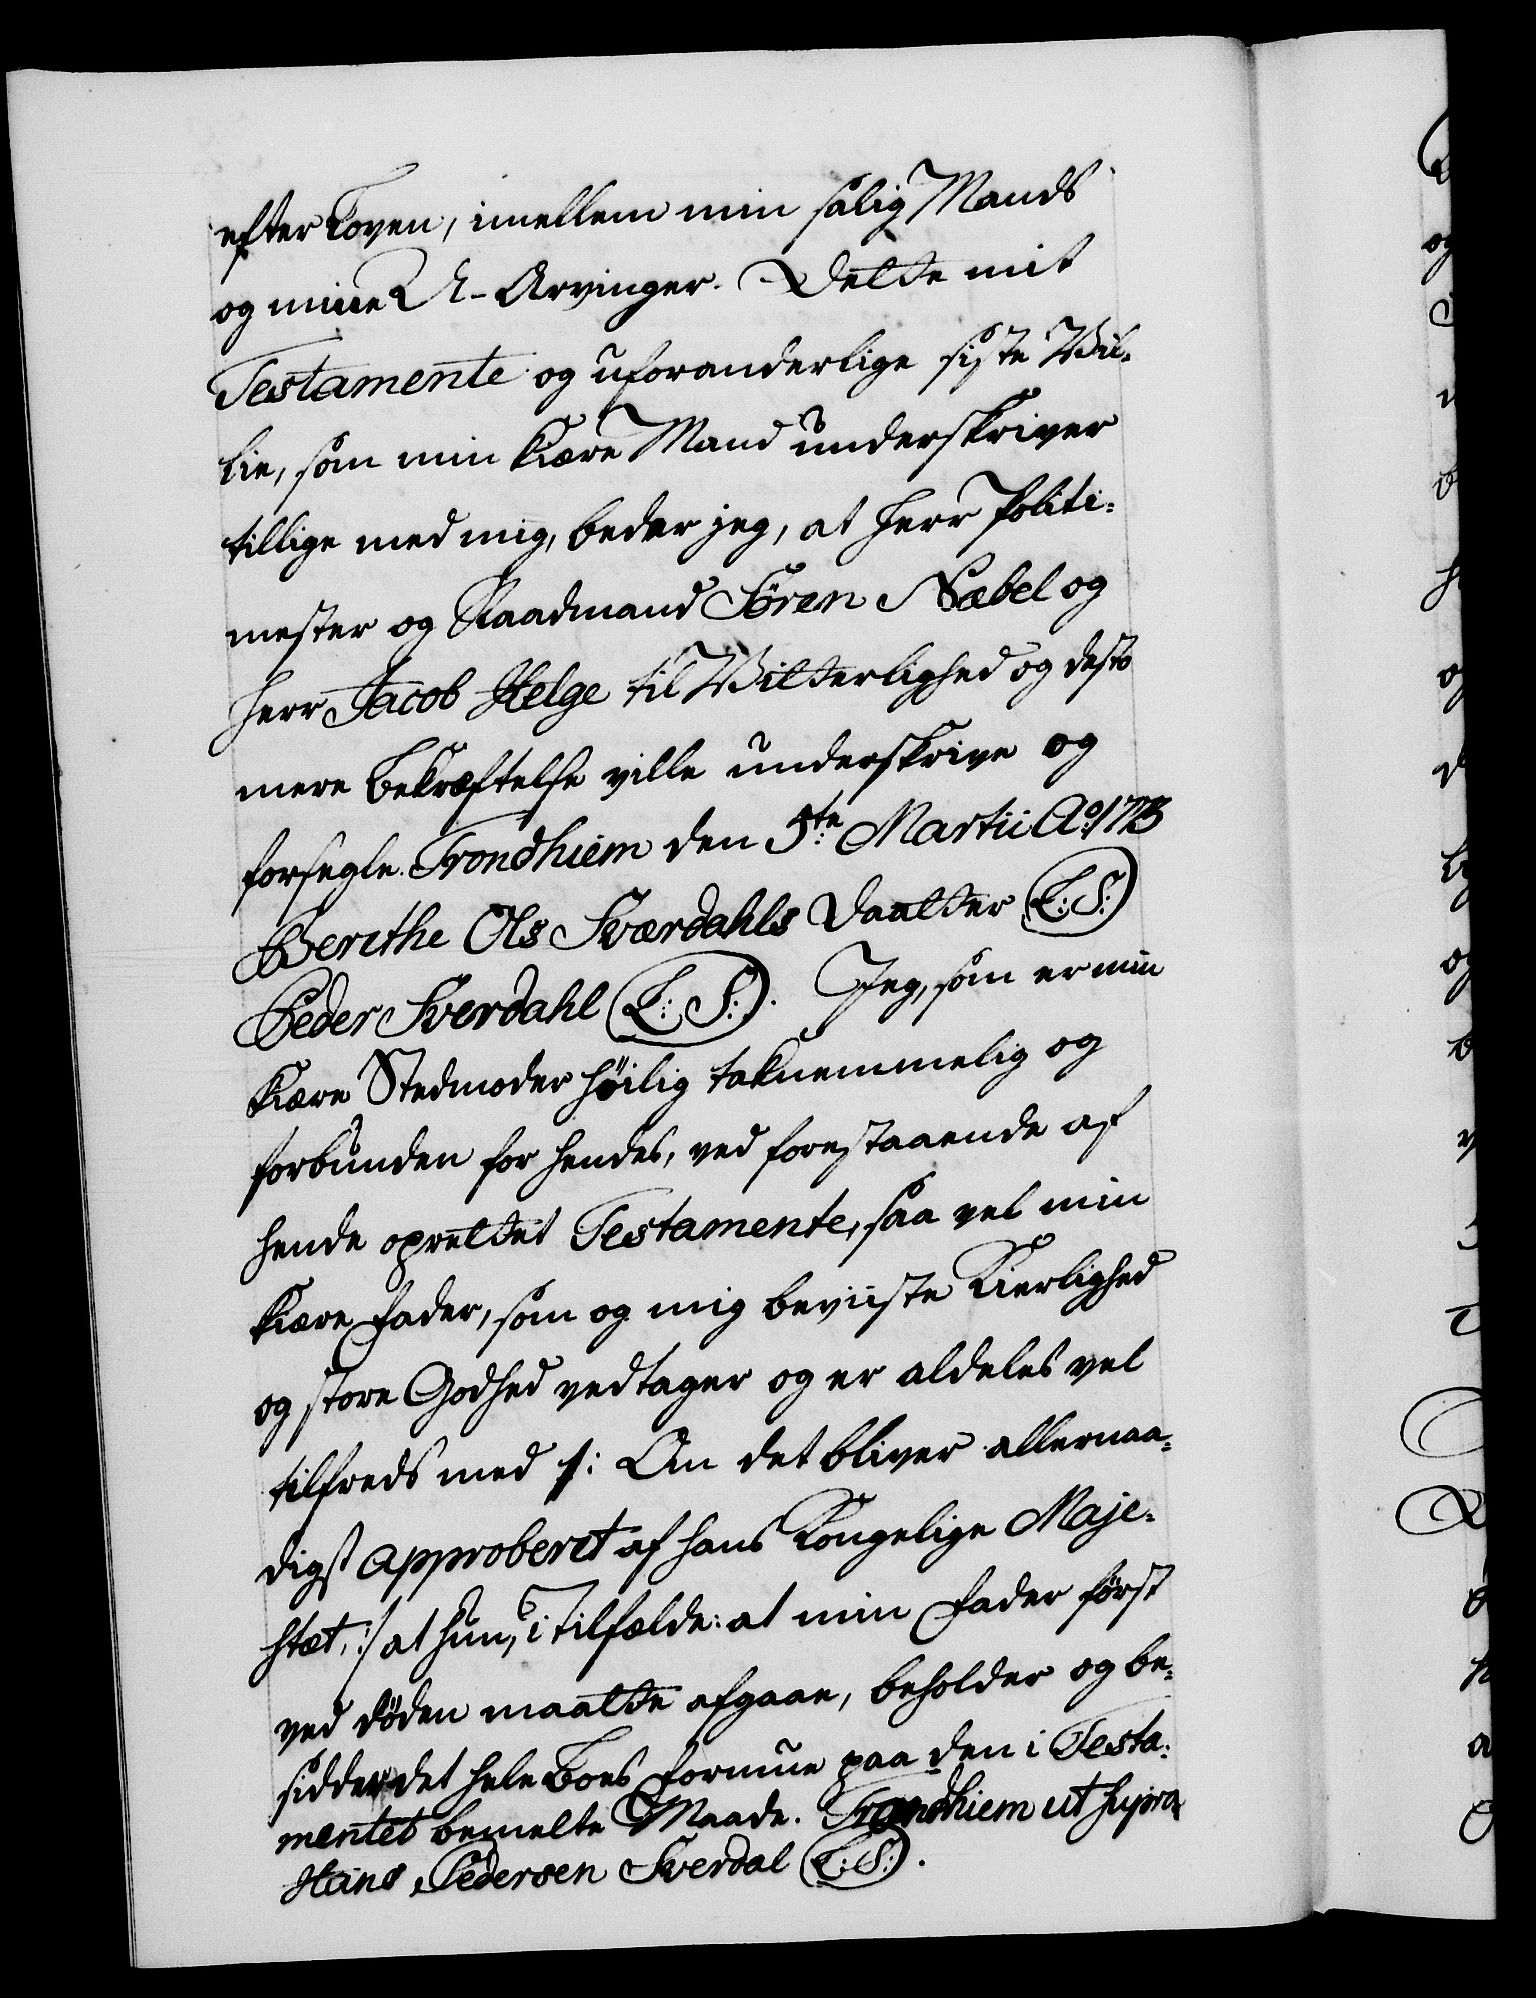 efter Loven, imellem min salig Mands
og mine Ud-Arvinger. Dette mit
Testamente og uforanderlige siste Vil-
lie, som min kiære Mand underskriver
tillige med mig, beder jeg, at Herr Politi-
mester og Raadmand Sören Næbel og
Herr Jacob Helge til Vitterlighed og desto
mere Bekræftelse ville underskrive og
forsegle. Trondhiem den 5te: Martii Ao:
Berethe Ols Sværdahls Daatter (L:S:)
Peder Sverdahl (L:S:). Jeg, som er min
kiære Stedmoder höilig taknemmelig og
forbunden for hendes, ved forestaaende af
hende oprettet Testamente, saa vel min
kiære Fader, som og mig beviiste Kierlighed
og store Godhed vedtager og er aldeles vel
tilfreds med /: Om det bliver allernaa-
digst approberet af hans Kongelige Maje-
stæt, :/ at hun, i Tilfælde: at min Fader först
ved döden maatte afgaae, beholder og be-
sidder det hele Boes Formue paa den i Testa-
mentet bemelte Maade. Trondhiem ut supra
Hans Pedersen Sverdal (L:S:).